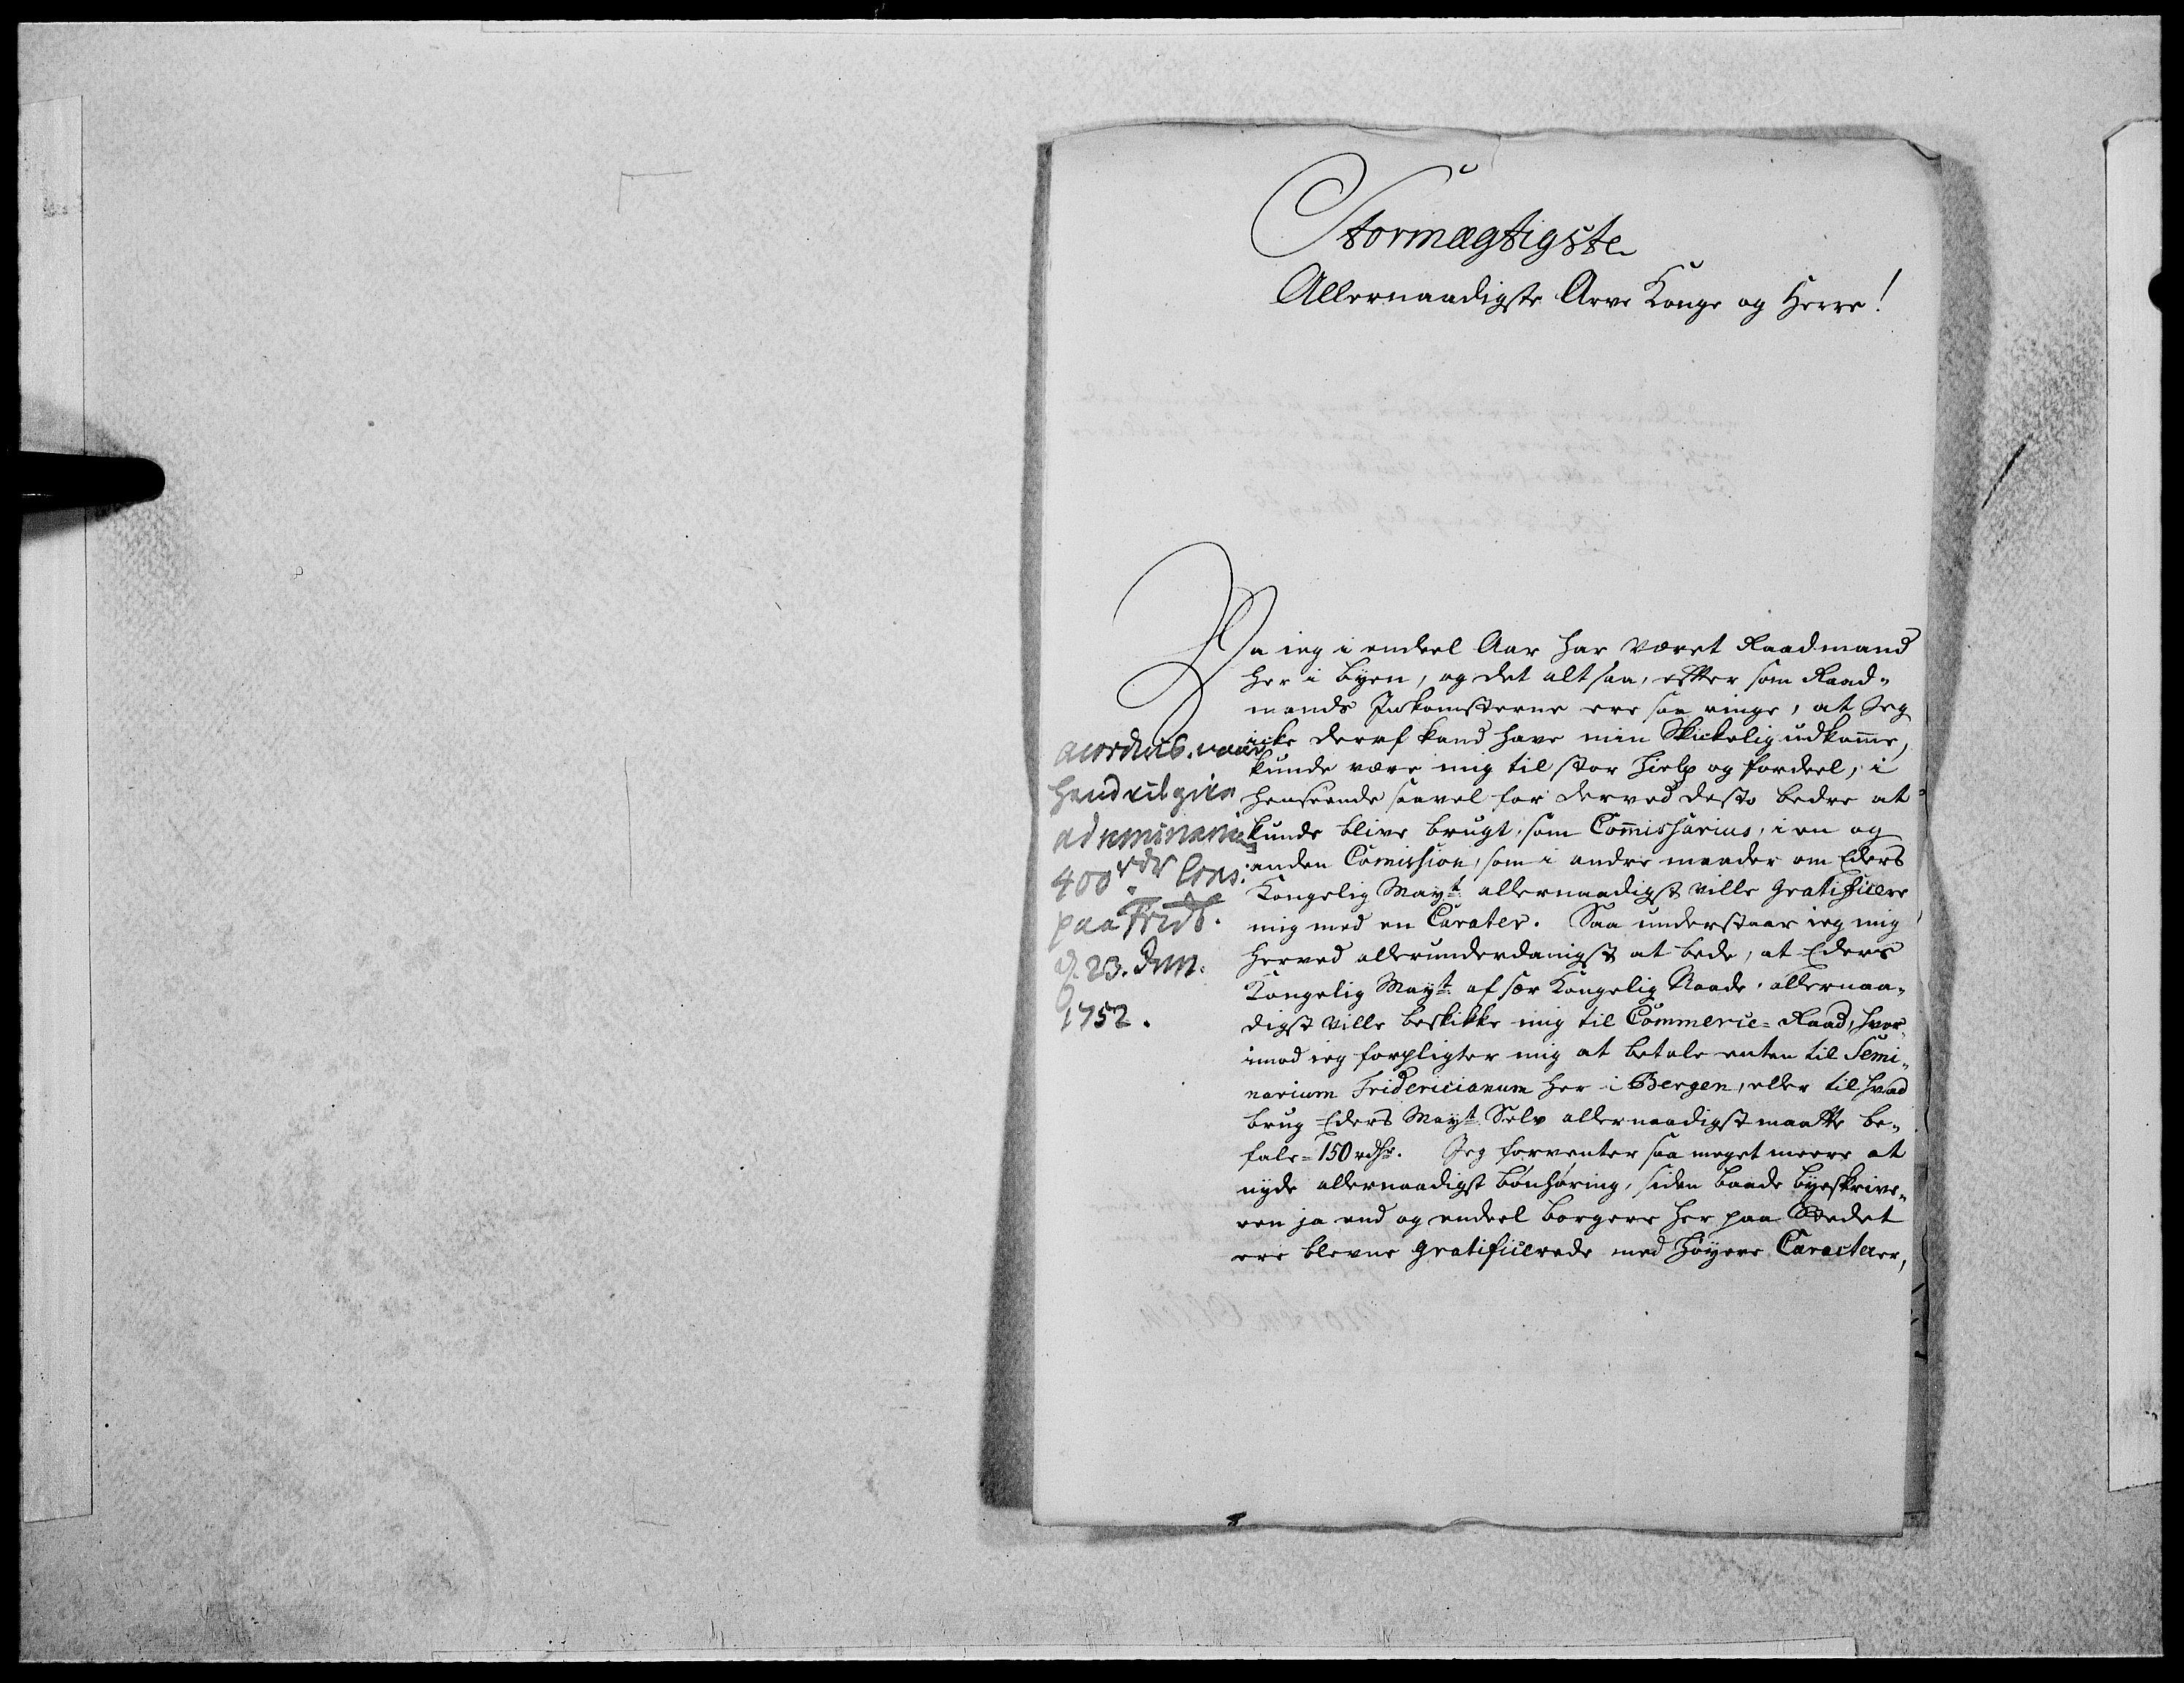 Stormægtigste
Allernaadigste Arve Konge og Herre!
Da ieg i endeel Aar har været Raadmand
her i byen, og det altsaa, efter som Raad-
mands Indkomsterne ere saa ringe, at Jeg
icke deraf kand have min Skickelig udkomme,
kunde være mig til stor hielp og fordeel, i
henseende saavel for derved desto bedre at
kunde blive brugt, som Commissarius, i en og
anden Comission, som i andre maader om Eders
Kongelig Mayt. allernaadigst ville gratificere
mig med en Carater. Saa understaar ieg mig
herved allerunderdanigst at bede, at Eders
Kongelig Mayt. af sær Kongelig Naade, allernaa-
digst ville beskikke mig til Commerce-Raad, hvor-
imod ieg forpligter mig at betale enten til Semi-
narium Fridericianum her i Bergen, eller til hvad
brug Eders Mayt. Selv allernaadigst maatte be-
fale = 150 rdlr. Jeg forventer saa meget meere at
nyde allernaadigst bønhøring, siden baade byeskrive-
ren ja end og endeel borgere her paa Stedet
ere blevne gratificerede med høyere Caracterer,
accorderes, naar
hand vil give
ad seminarium
400 rdr Cons.
paa Fridb.
d. 23. Jun.
1752.